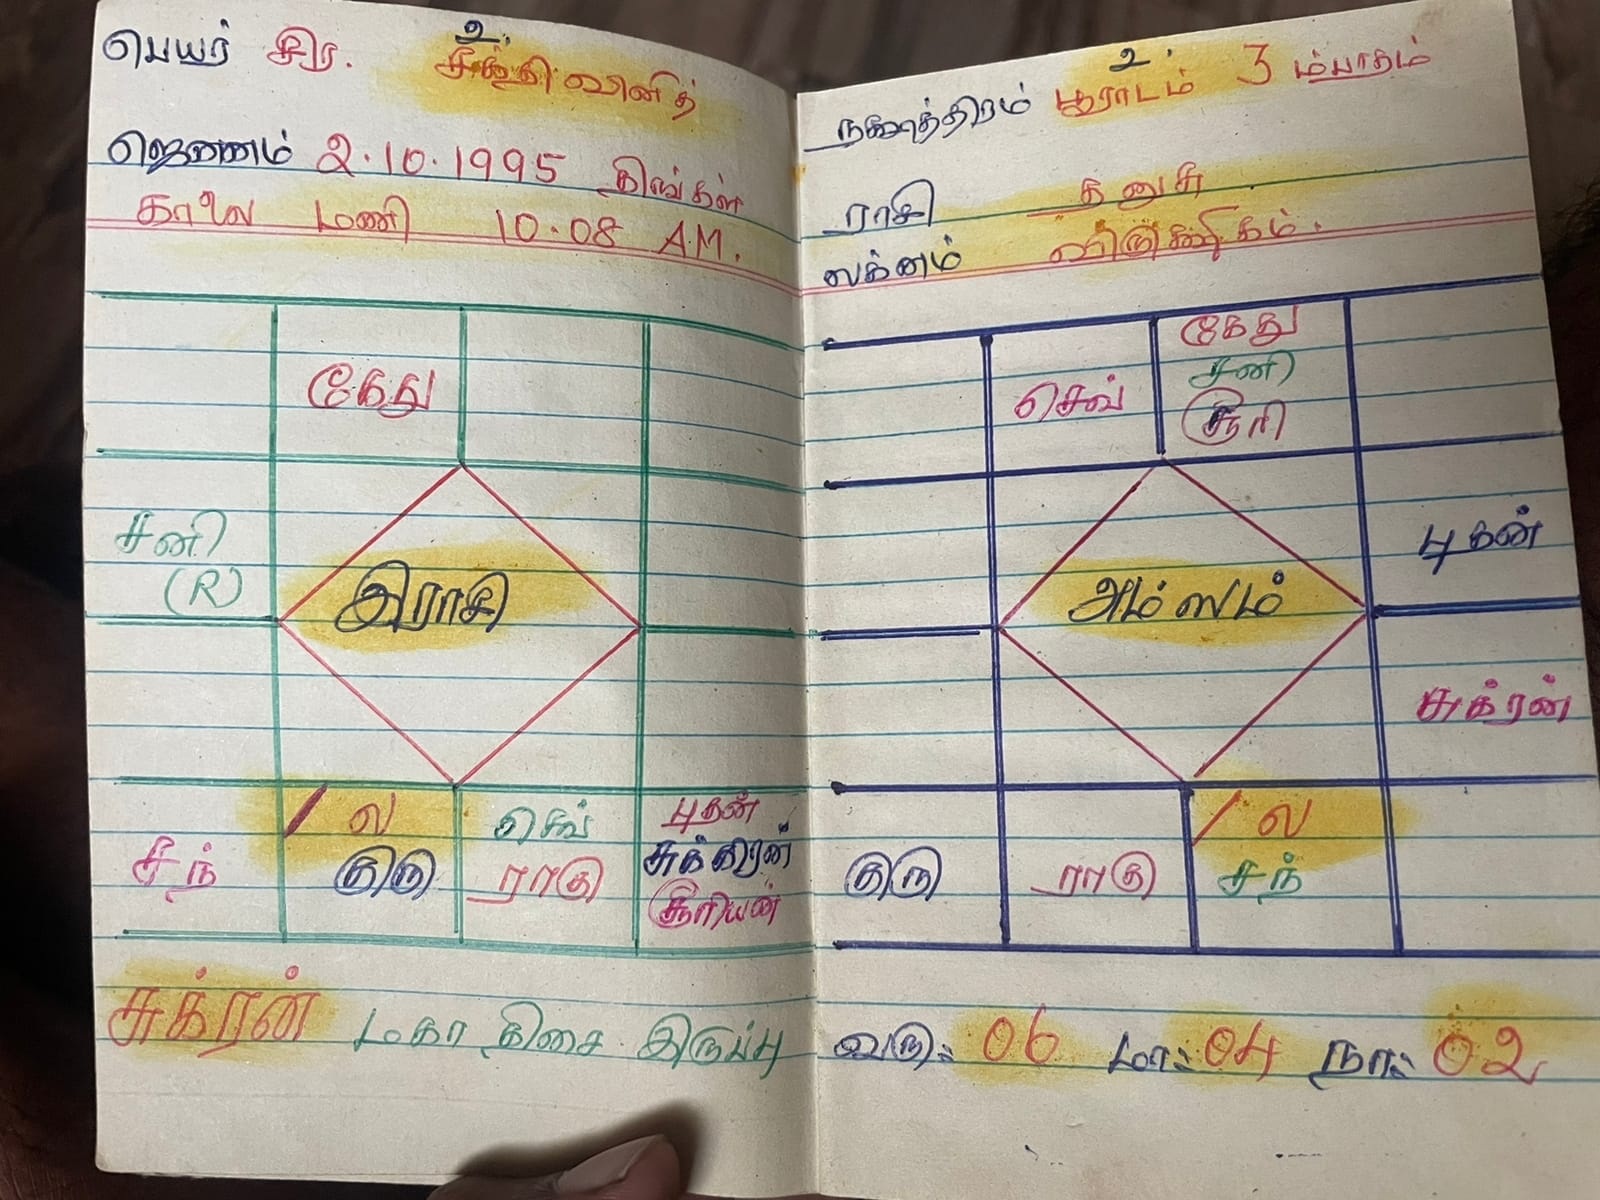 உ
பெயர் சிர. சக்தி வினித்
ஜெனனம் 2.10.1995 திங்கள்
காலை மணி 10.08 A.M.
கேது
சனி
(R)
இராசி
/ ல
சந்
குரு
செவ்
ராகு
புதன்
சுக்கிரன்
சூரியன்
சுக்ரன் மகா திசை இருப்பு
உ
நக்ஷத்திரம் பூராடம் 3 ம்பாதம்
ராசி தனுசு
லக்னம் விருச்சிகம்.
செவ்
கேது
சனி
சூரி
புதன்
அம்ஸம்
சுக்ரன்
/ ல
குரு
ராகு
சந்
வரு: 06 மா: 04 நா: 02